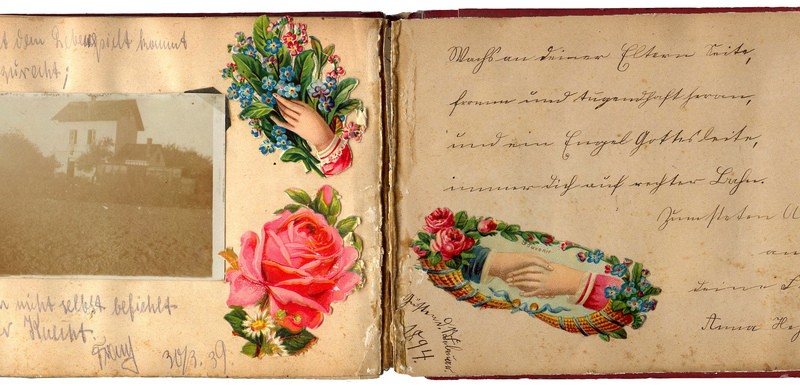 dem Leben spielt kommt
zurecht;
nicht selbst befiehlt
Knecht.
Franz 30/3. 39.
Wachs an deiner Eltern Seite,
fromm und tugendhaft heran,
und ein Engel Gottes leite,
immer dich auf rechter Bahn.
Zum steten
an
deine
Anna
SOUVENIR
1894.